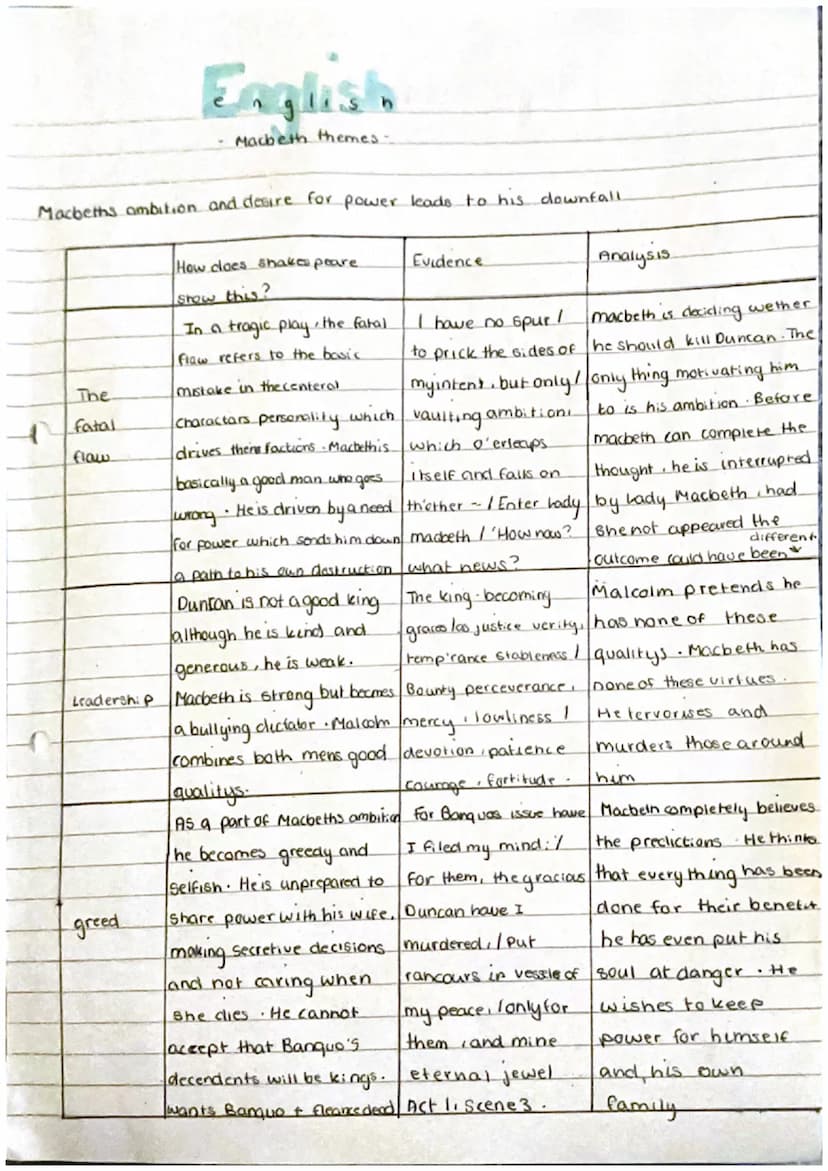 English
english
- Macbeth themes -
Macbeths ambition and desire for power leads to his downfall
How does shakespeare
show this?
Evidence
Analysis
The
fatal
flaw
In a tragic play, the fatal
flaw refers to the basic
mistake in the centeral
charactars personality which
drives there factions. Macbeth is
basically a good man who goes
wrong. He is driven by a need
for power which sends him down
a path to his own destruction
I have no spur /
to prick the sides of
my intent, but only /
vaulting ambition,
which o'erleaps
itself and falls on
th'other ~ / Enter Lady
macbeth / 'How now?
what news?
macbeth is deciding wether
he should kill Duncan. The
only thing motivating him
to is his ambition. Before
macbeth can complete the
thought, he is interrupted
by Lady Macbeth, had
she not appeared the
different
outcome could have been
Leadership
Duncan is not a good king
although he is kind and
generous, he is weak.
Macbeth is strong but becomes
a bullying dictator. Malcolm
combines both mens good
qualitys.
The king-becoming
graces / as justice verity,
temp'rance stableness /
Bounty perceverance,
mercy, lowliness /
devotion, patience
courage, fortitude.
Malcolm pretends he
has none of these
qualitys. Macbeth has
none of these virtues.
He tervorises and
murders those around
him
greed
As a part of Macbeths ambition
he becomes greedy and
selfish. He is unprepared to
share power with his wife,
making secretive decisions
and not caring when
she dies. He cannot
accept that Banquo's
decendents will be kings.
wants Banquo + fleance dead
for Banquos issue have
I filed my mind: /
for them, the gracious
Duncan have I
murdered, / Put
rancours in vessle of
my peace, / only for
them, and mine
eternal jewel
Act 1, Scene 3.
Macbeth completely believes
the predictions. He thinks
that everything has been
done for their benefit
he has even put his
soul at danger. He
wishes to keep
power for himself
and, his own
family